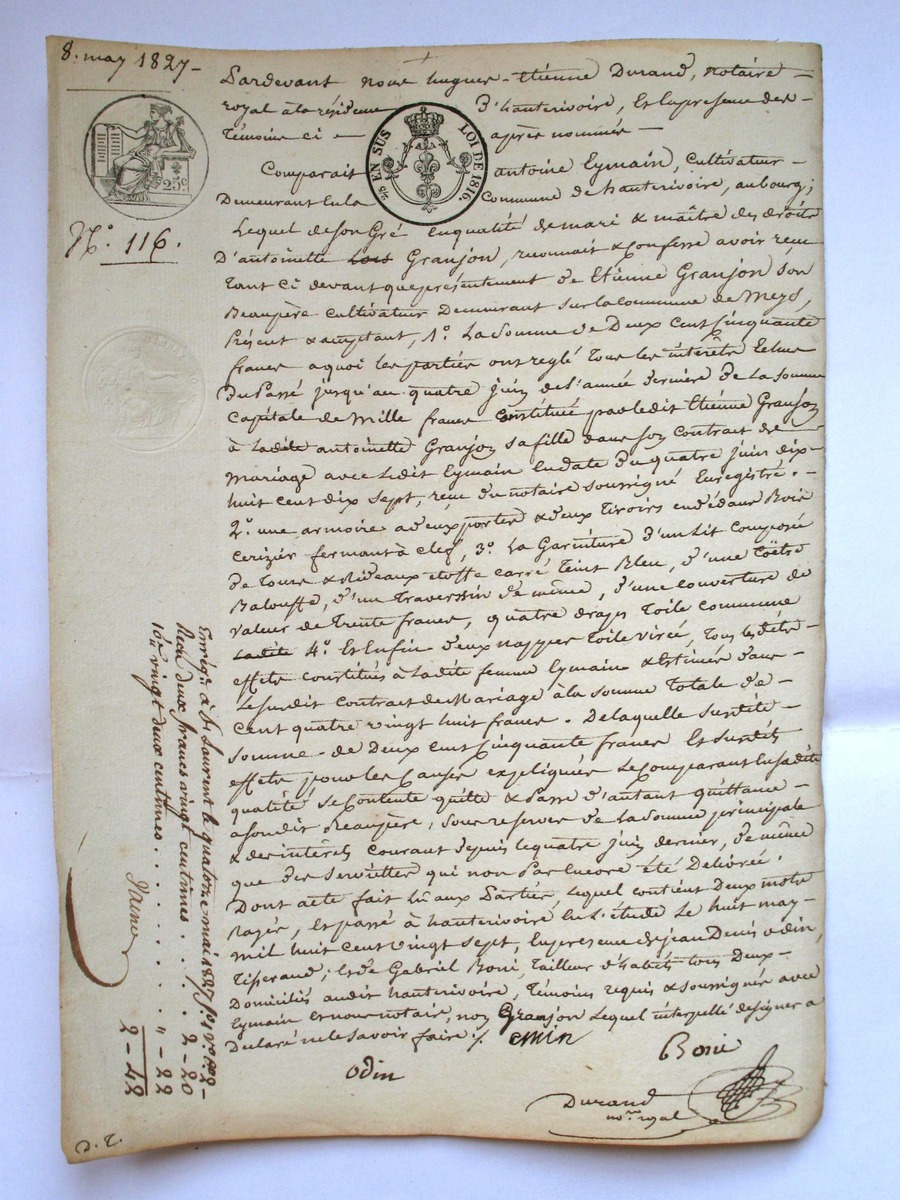 8. may 1827 -
Pardevant nous hugues-Etienne Durand, notaire -
royal à la résidence d'hauterivoire, et en presence des -
témoins ci - après nommés -
25c
EN SUS LOI DE 1816.
N.° 116.
Comparait antoine Eymain, cultivateur -
Demeurant en la Commune de hauterivoire, au bourg;
Lequel de son Gré en qualité de mari & maître des droits
D'antoinette Granjon, reconnait & confesse avoir reçu
tant ci devant que présentement de Etienne Granjon son
Beaupère cultivateur Demeurant sur la commune de Meys,
Présent & acceptant, 1.° La somme de Deux cent cinquante
francs a quoi les parties ont reglé tous les intérêts Echus
Du Passé jusqu'au quatre juin de l'année dernière de la somme
Capitale de Mille francs Constituée par ledit Etienne Granjon
à ladite antoinette Granjon sa fille dans son Contrat de
Mariage avec ledit Eymain en date du quatre juin dix-
huit cent dix sept, reçu du notaire soussigné Enregistré. -
2.° une armoire a deux portes & deux tiroirs en dedans Bois
Cerizier fermant à clef, 3.° La Garniture d'un lit composée
de tours & Rideaux etoffe carré teint Bleu, d'une Coëtre
Balouffe, d'un traverssin de même, d'une couverture de
valeur de trente francs, quatre draps toile commune
ladite 4.° Et Enfin deux nappes toile virée, tous lesdits -
effets constitués à ladite femme Eymain & Estimés dans -
le susdit contrat de Mariage à la somme totale de -
Cent quatre vingt huit francs. De laquelle susdite -
somme de Deux cent cinquante francs Et susdits
effets pour les Causes expliquées le Comparant en sadite
qualité se Contente quitte & Passe d'autant quittance -
a son dit Beaupère, sous reserves de la somme principale
& des intérêts courant depuis le quatre juin dernier, de même
que des serviettes qui non Pas encore été Delivrée.
Dont acte fait lu aux Parties, lequel contient Deux mots
rayés, et passé à hauterivoire en l'étude le huit may -
Mil huit cent vingt sept, en presence de jean Denis odin,
Tisserand; et de Gabriel Boni, tailleur d'habits tous Deux -
Domiciliés audit hauterivoire, témoins requis & soussignés avec
Eymain et nous notaire, non Granjon lequel interpellé de signer a
Declaré ne le savoir faire ./.
emin
Boni
odin
Durand
no.re royal
Enrég.é à St Laurent le quatorze mai 1827
Reçu deux francs vingt centimes . . . 2-20
10.e vingt deux centimes . . . . . . " - 22
2-42
D. E.